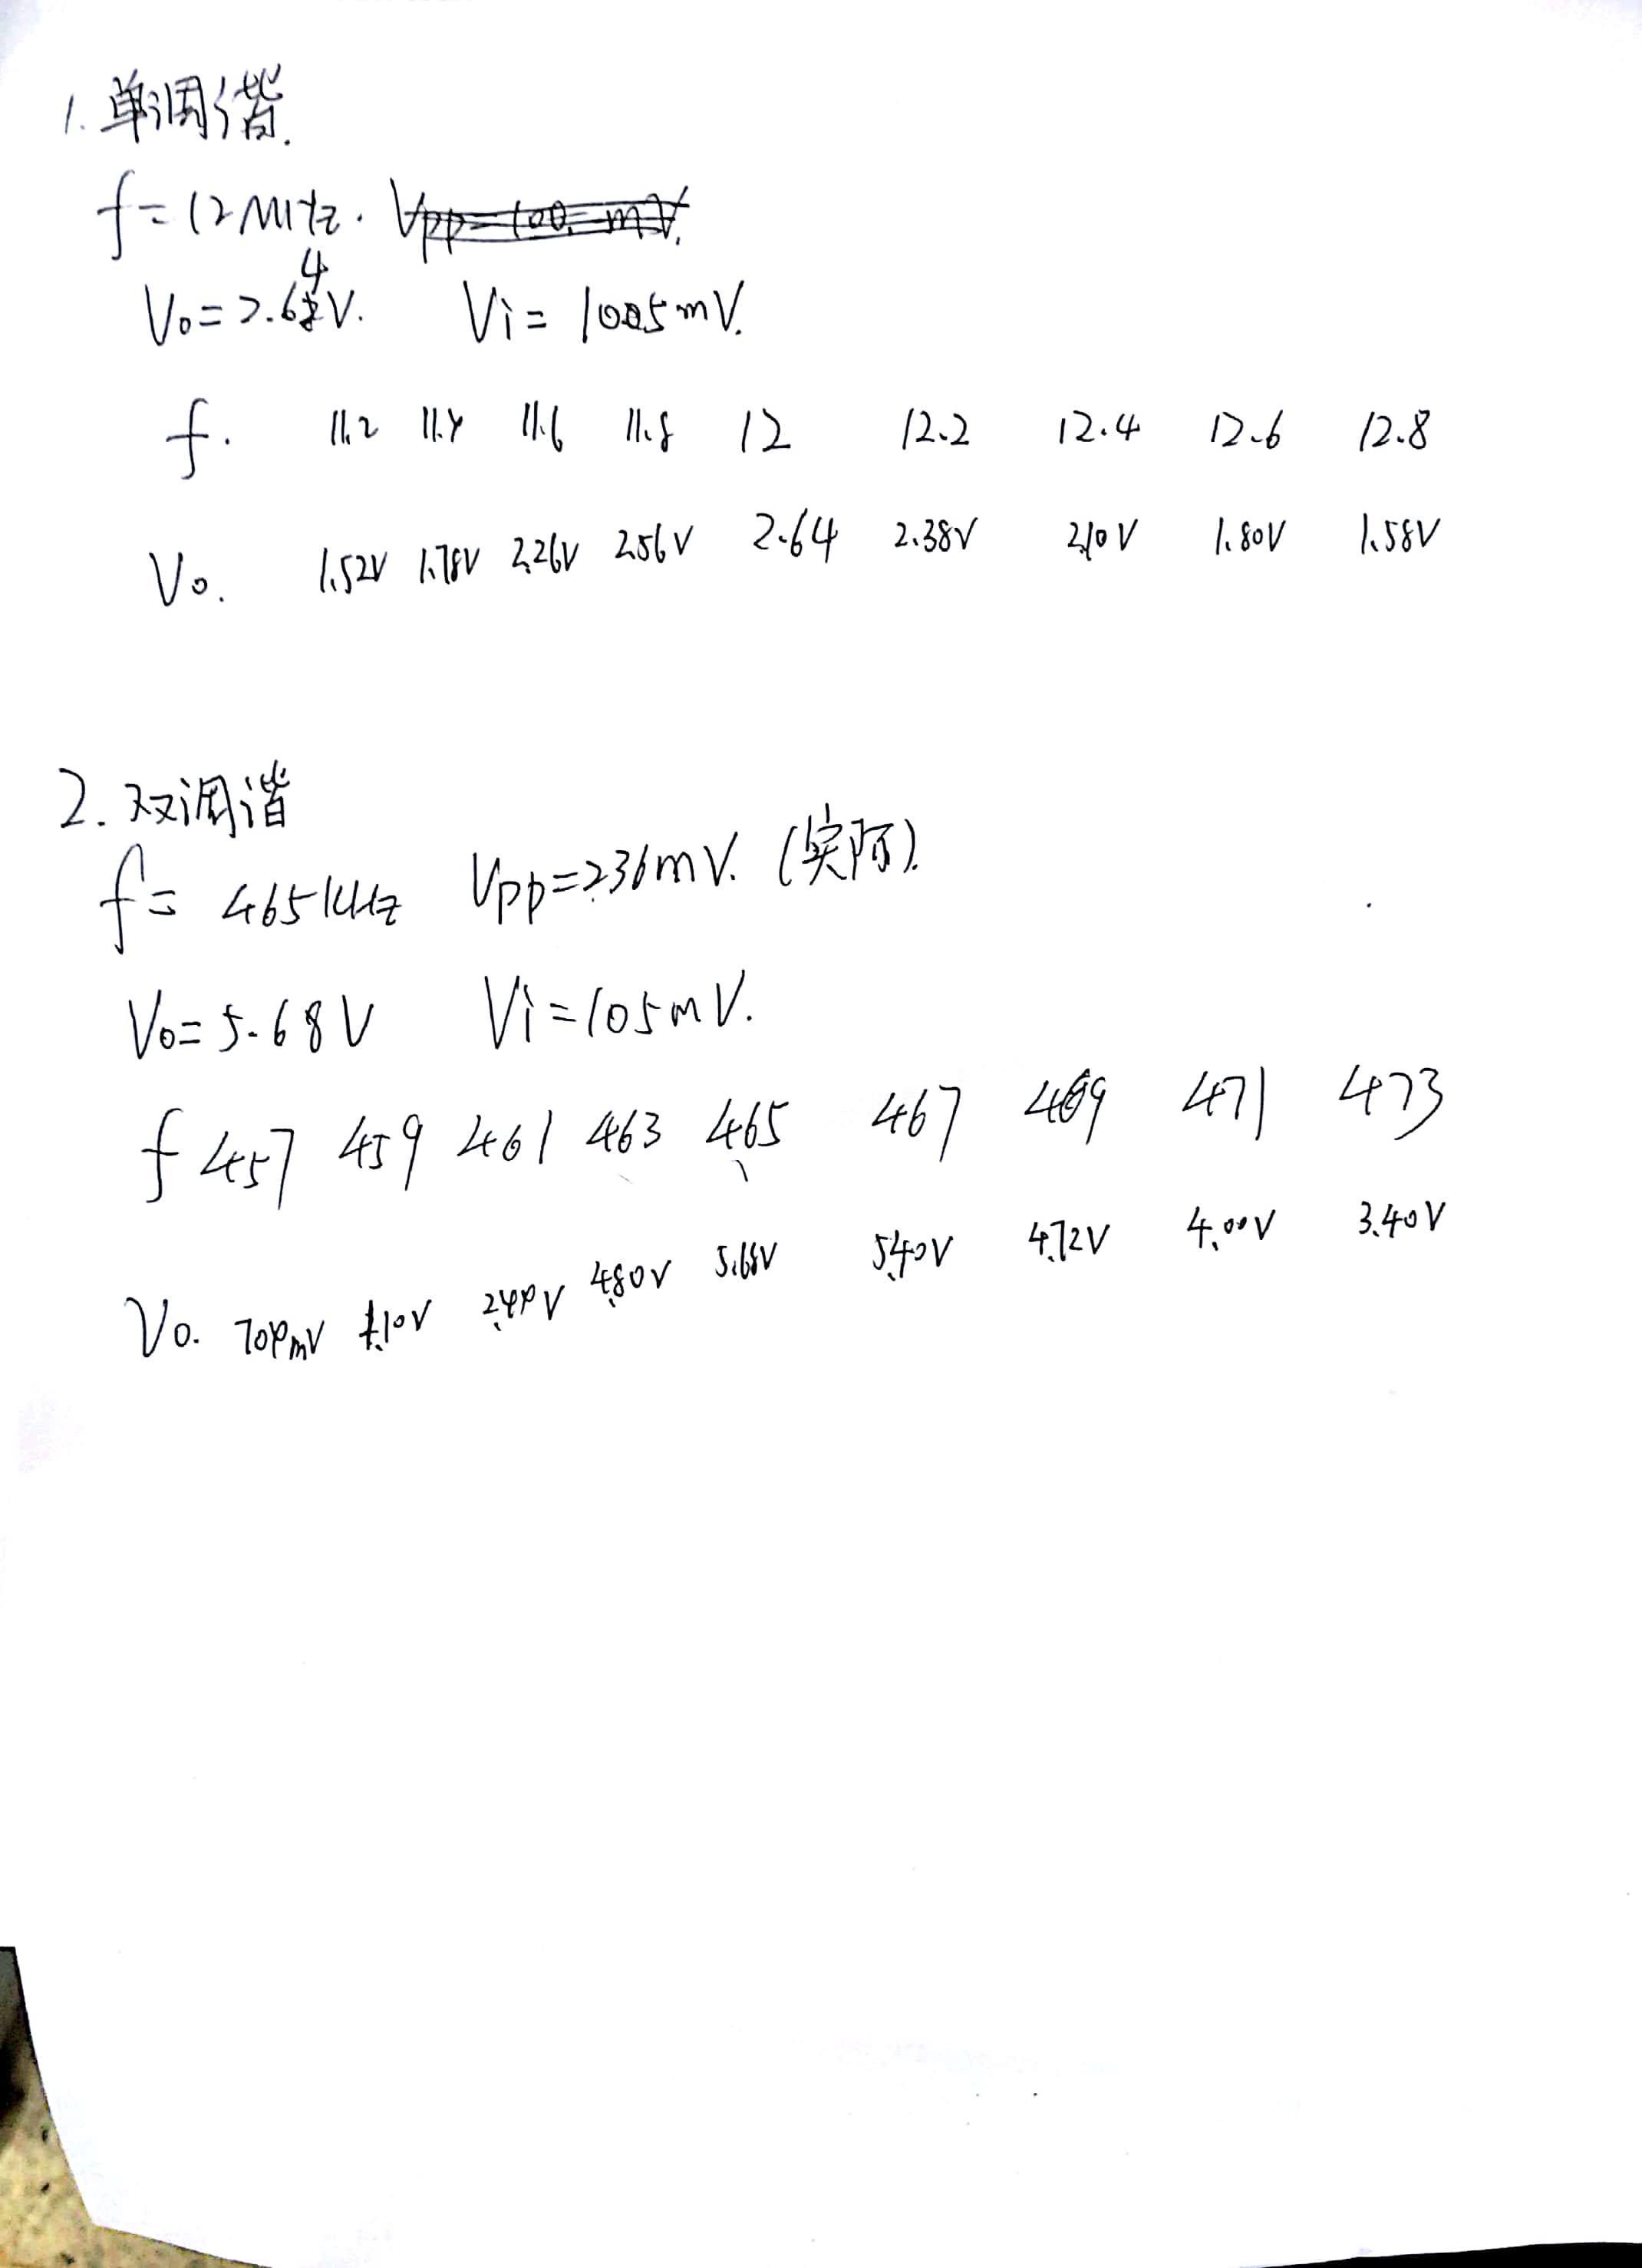 1. 单调谐.
f=12MHz.
Vo=2.64V. Vi=
f. 11.2 11.4 11.6 11.8 12 12.2 12.4 12.6 12.8
Vo. 1.52V 1.78V 2.26V 2.56V 2.64 2.38V 2.10V 1.80V 1.58V
2. 双调谐
f= 465KHz Vpp=236mV. (实际).
Vo=5.68V Vi=105mV.
f 457 459 461 463 465 467 469 471 473
Vo. 700mV 1.10V 2.40V 4.80V 5.68V 5.40V 4.72V 4.00V 3.40V